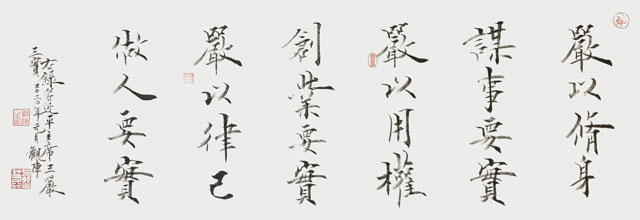 嚴以脩身
謀事要實
嚴以用權
創業要實
嚴以律己
做人要實
右錄習近平主席三嚴
三實 二〇二〇年元月 觀陣